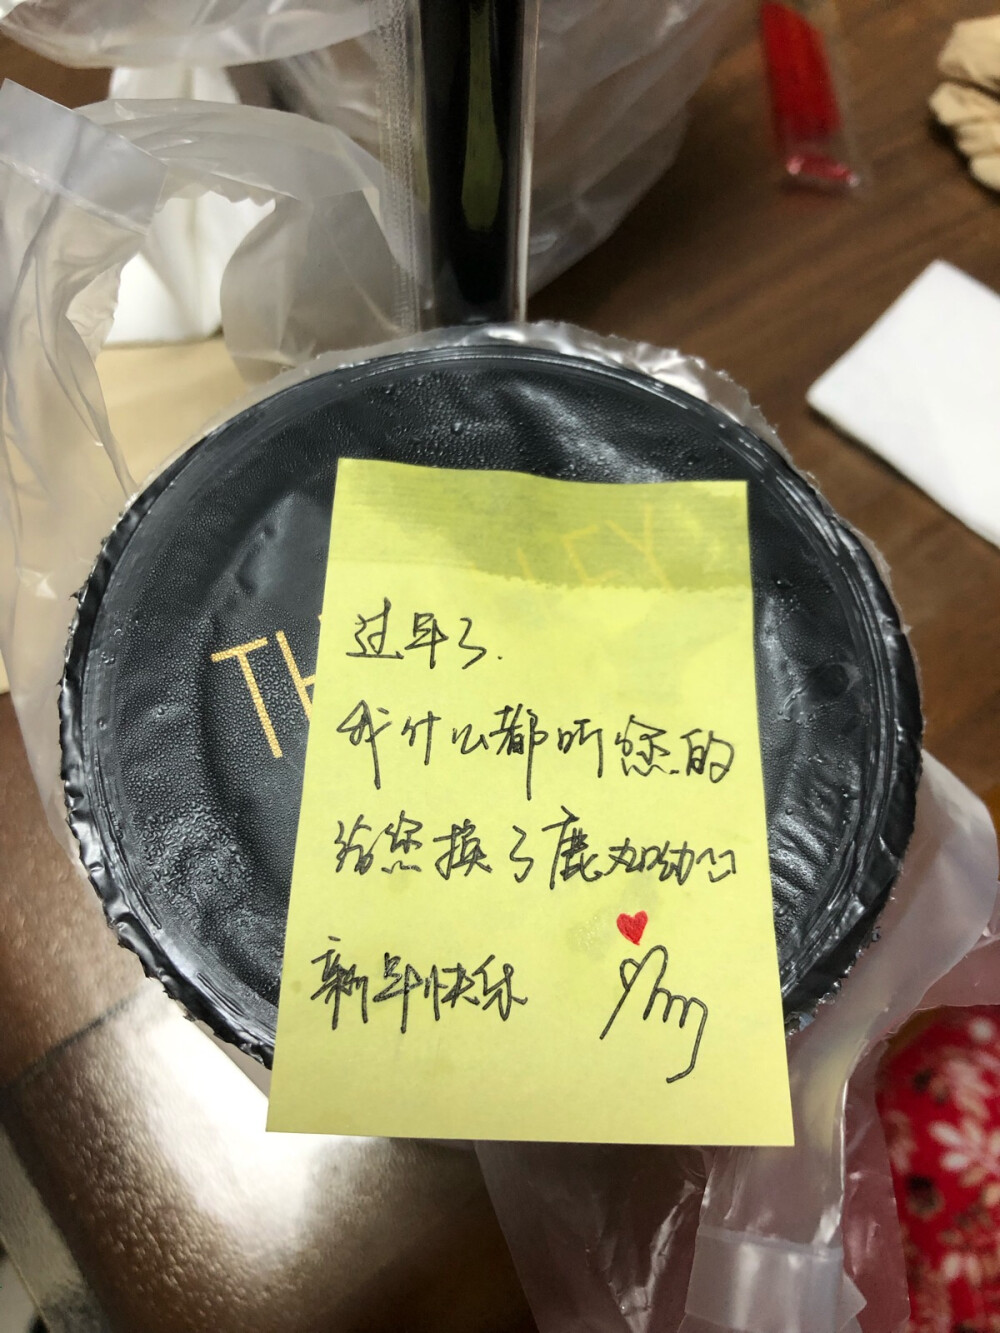 TH LEY
过年了.
我什么都听您的
给您换了鹿
新年快乐